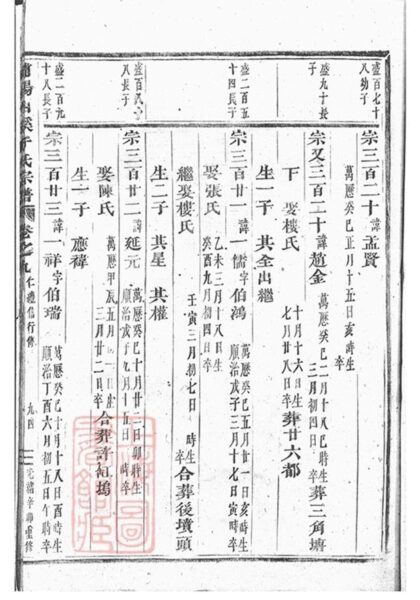 盛百七十
八幼子
宗三百二十諱孟賢
萬曆癸巳正月十五日亥時生
卒
盛九十長
子
宗又三百二十諱趙金
萬曆癸巳二月十八巳時生
三月初四日 卒
葬三角塘
下 娶樓氏
十月十六日生
七月廿八日卒
葬廿六都
生一子 其全出繼
盛二百五
十四長子
宗三百廿一諱一儒字伯鴻
萬曆癸巳三月廿一日亥時生
順治戊子三月十七日寅時卒
娶張氏
乙未三月十八日生
癸酉九月初四日卒
繼娶樓氏
壬寅三月初七日 時生
卒
合葬後墳頭
生二子 其星 其權
盛百八十
八長子
宗三百廿二諱延元
萬曆癸巳十月廿三日卯時生
順治戊子九月十五日 時卒
娶陳氏
萬曆甲辰五月 日 時生
三月廿二日 卒
合葬許缸塢
生一子 應禕
盛二百九
十八長子
宗三百廿三諱一祥字伯瑞
萬曆癸巳十月十八日 時生
順治丁酉六月初五日 時卒
氏宗譜
卷之九
仁禮信行傳
九四
光緒辛卯重修